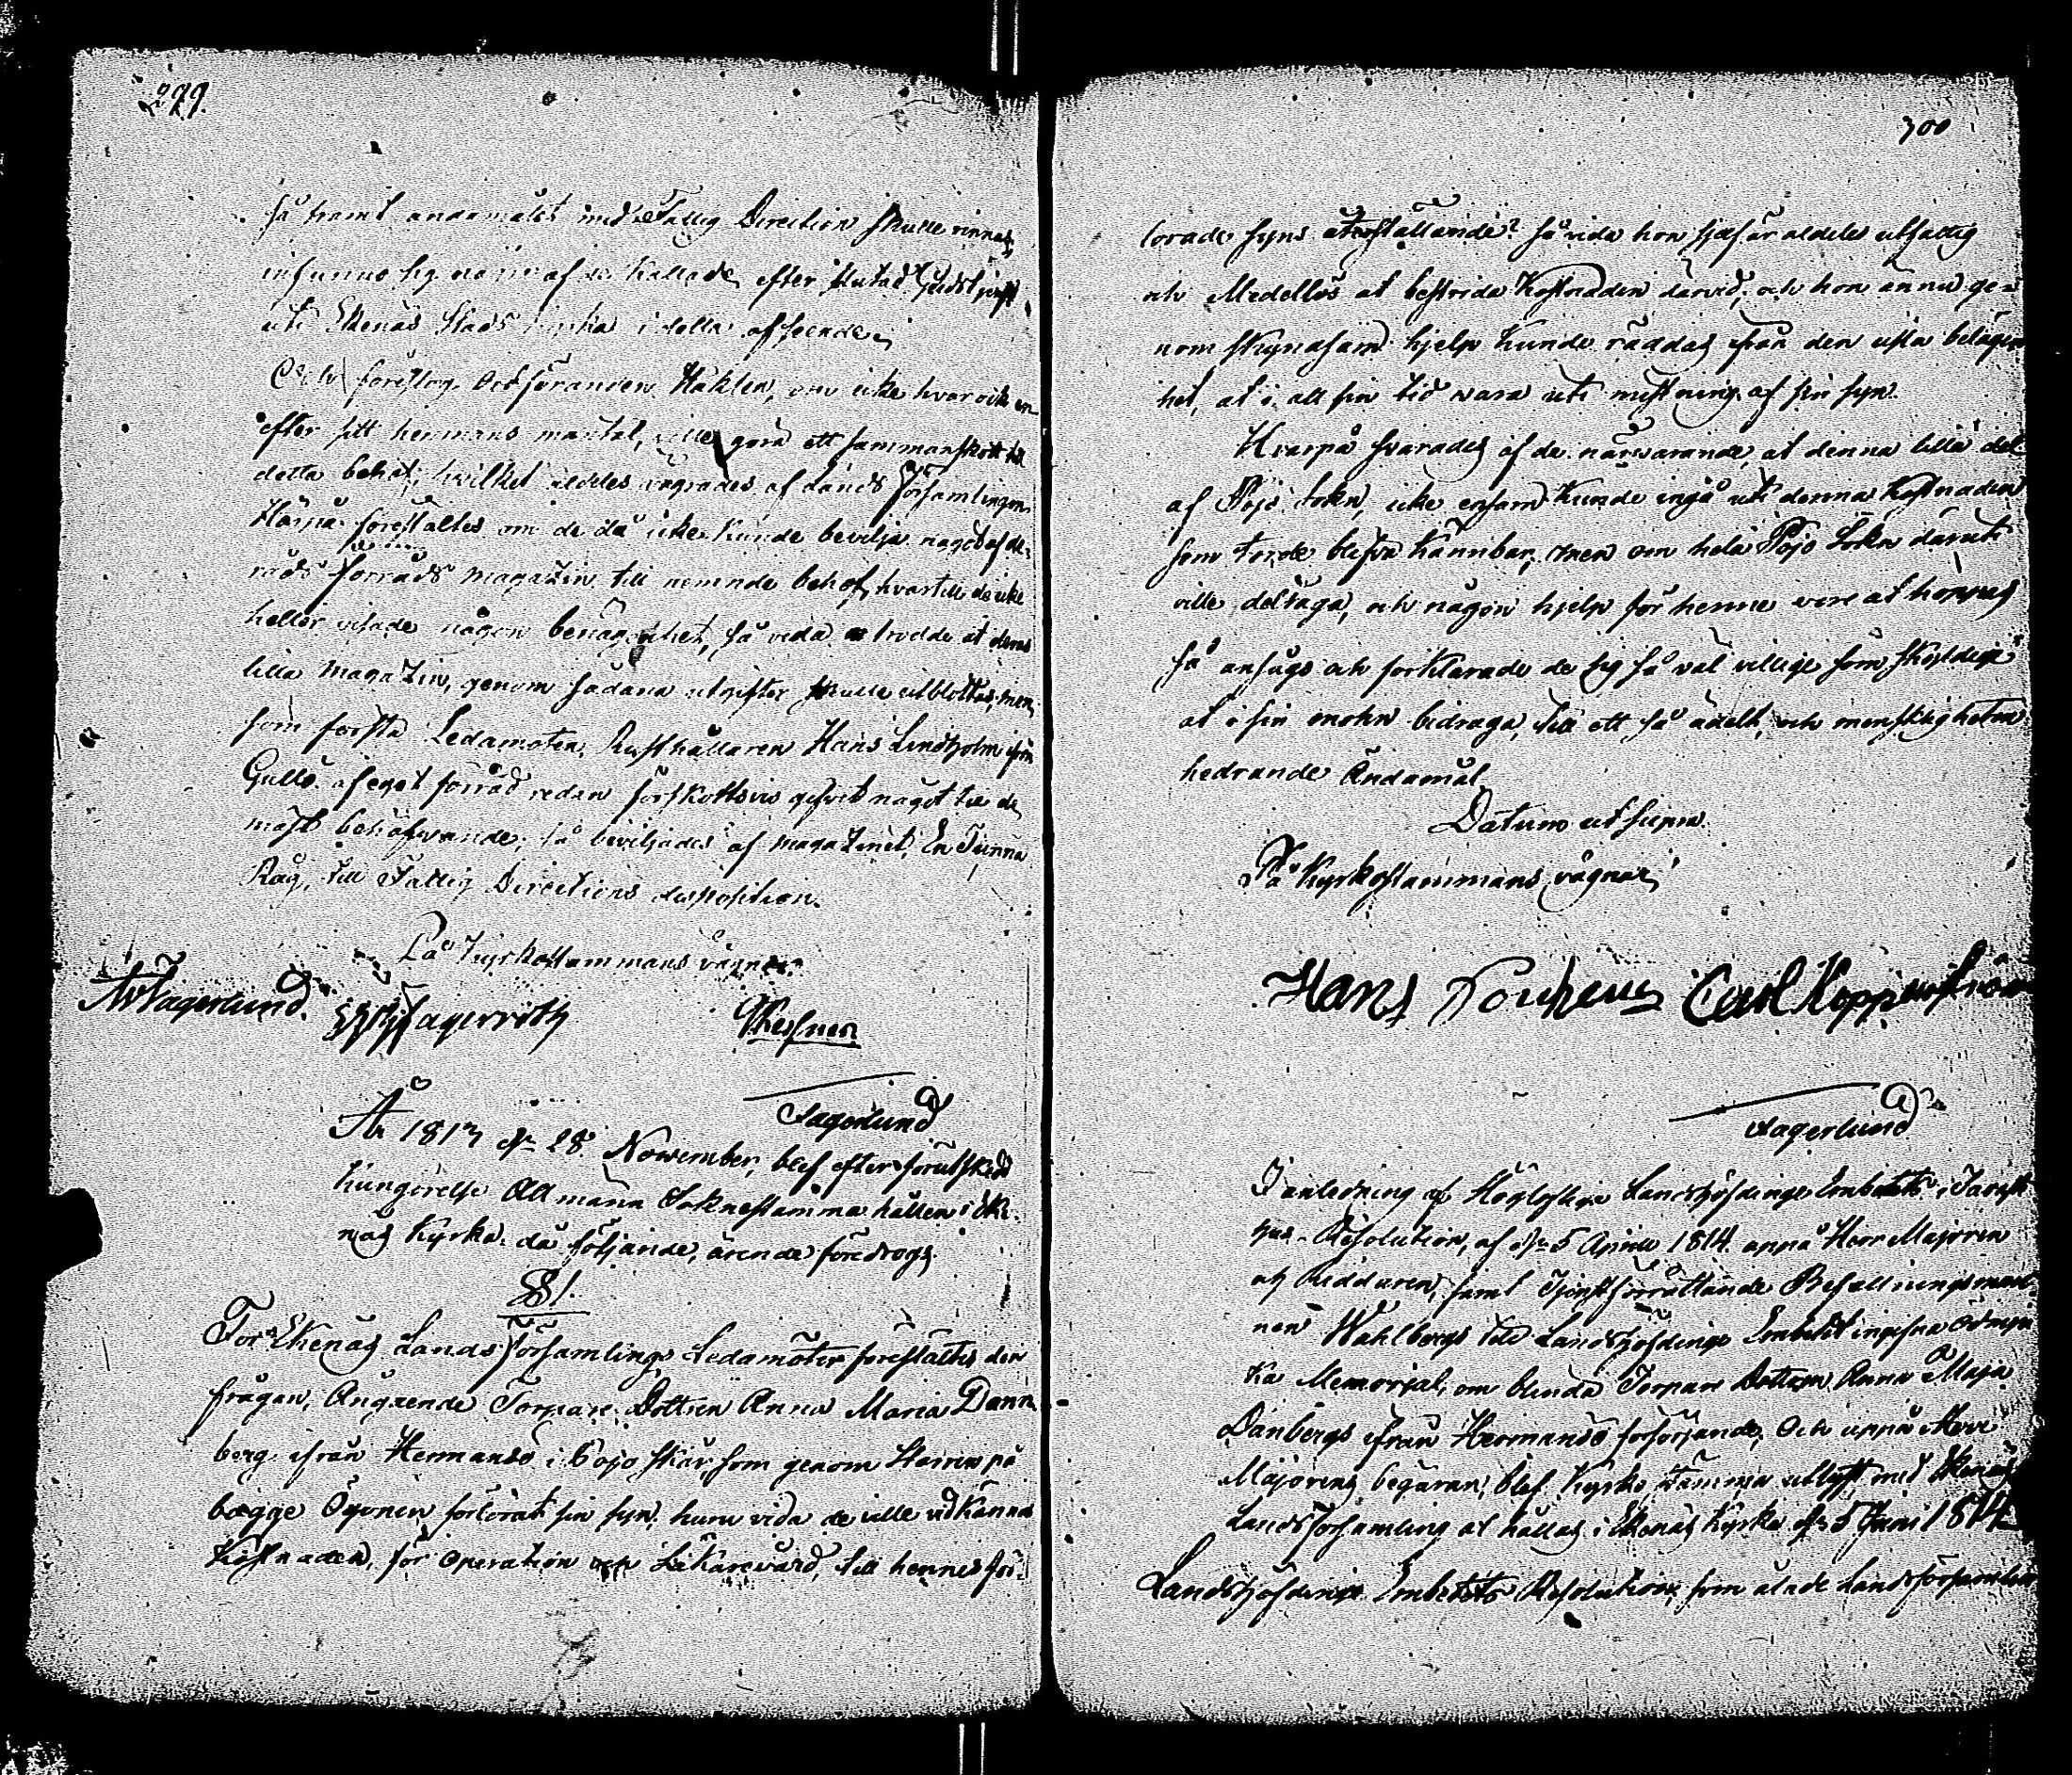 299.
så framt ändamålet med Fattig Direction skulle vinnas
infunno sig någre af de kallade, efter slutad Gudstjenst
uti Ekenäs Stads kyrka i detta afseende.
föreslog Ordföranden Häkten, om icke hvar och en
efter sitt hemmans mantal, ville göra ett sammanskott till
detta behof; hvilket aldeles vägrades af Lands Församlingen.
Härpå föreställtes om de då icke kunde bevilja något af de-
ras Förråds magazin till nemnde behof, hvartill de icke
heller visade någon benägenhet, så vida de trodde at deras
lilla magazin, genom sådana utgifter skulle utblottas; men
som första Ledamoten, Rusthållaren Hans Lindholm ifrån
Gullö af eget förråd redan förskottsvis gifvit något till de
mäst behöfwande, så beviljades af magazinet, En Tunna
Råg, till Fattig Directions disposition.
På Kyrkostammans vägnar.
Fagerlund.
Fagerroth
Fagerlund
År 1813 den 28 November, blef efter förutskedd
kungörelse Allmänna Soknestamma hållen i Eke-
näs Kyrka, då följande, ärende föredrogs.
§ 1.
För Ekenäs Lands Församlings Ledamöter föreställtes den
frågan, Angående Torpare Dottren Anna Maria Dann-
berg ifrån Hermansö i Pojo skär, som genom Starren på
bägge Ögonen förlorat sin syn, huru vida de ville vidkänna
kostnaden, för Operation och Läkarevård, till hennes för-
300
lorade syns återställande? så vida hon sjelf är aldeles utfattig
och Medellös at bestrida kostnaden därvid, och hon ännu ge-
nom skyndsam hjelp kunde räddas ifrån den usla belägen
het, at i all sin tid vara uti mistning af sin syn.
Hvarpå svarades af de närwarande, at denna lilla del
af Pojo Sokn, icke ensam kunde ingå uti denna kostnaden
som torde blifva kännbar, men om hela Pojo Sokn däruti
ville deltaga, och någon hjelp för henne vore at hoppas
så ansågs och förklarade de sig så väl villige som skyldige
at i sin mohn bidraga, till ett så ädelt, och menskligheten
hedrande Ändamål.
Datum ut supra.
På Kyrkostammans vägnar
Hans Carl Kopperström
Fagerlund
I anledning af Höglofliga Landshöfdinge Embetets i Tavast
hus Resolution, af den 5 April 1814. uppå Herr Majoren
och Riddaren, samt Tjenstförrättande Befallningsman
nen Wahlbergs till Landshöfdinge Embetet ingifna ödmju
ka Memorial, om blinda Torpare Dottren Anna Maja
Danbergs ifrån Hermansö försörjande, Och uppå Herr
Majorens begäran, blef Kyrko Stamma utlyst med Ekenäs
Landsförsamling at hållas i Ekenäs Kyrka den 5 Juni 1814
Landshöfdinge Embetets Resolution, som ålade Landsförsamlin